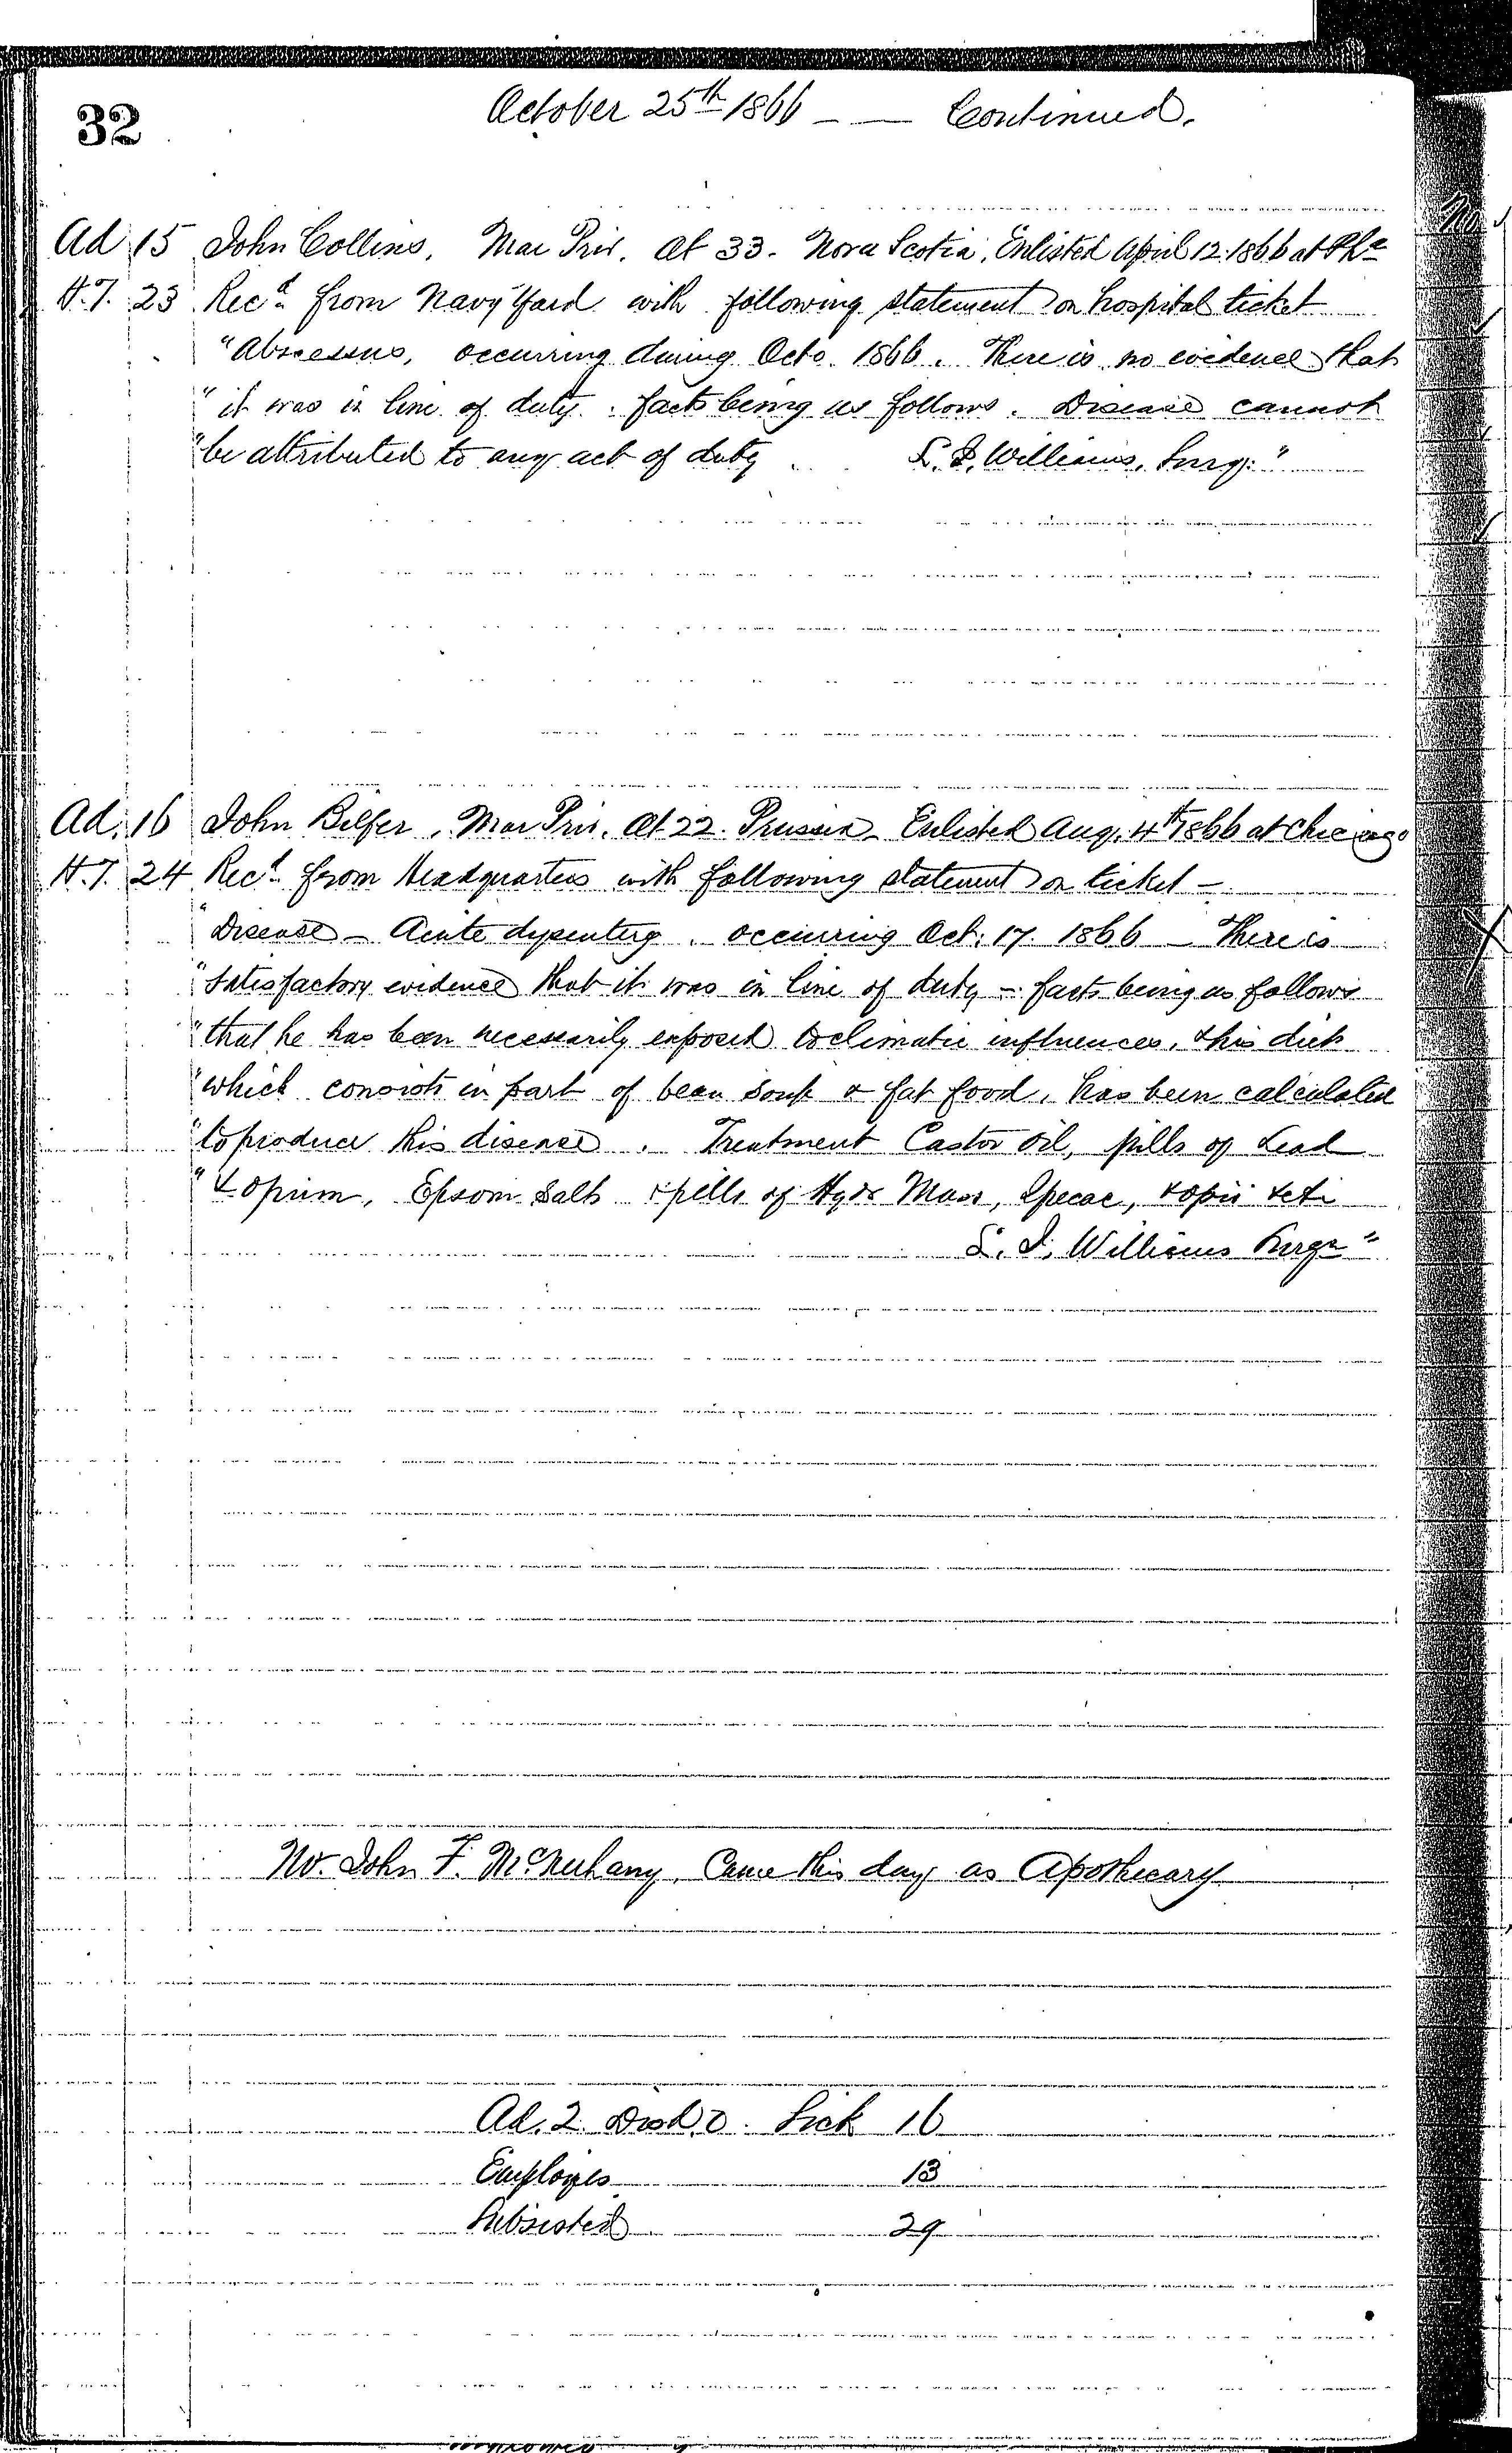 32
October 25th 1866 — — Continued.
Ad 15 John Collins, Mar Priv. At 33. Nova Scotia, Enlisted April 12. 1866 at Pha
H.T. 23 Recd from Navy Yard with following statement on hospital ticket
"Abscessus, occurring during Octo. 1866. There is no evidence that
"it was in line of duty. facts being as follows. Disease cannot
"be attributed to any act of duty L. J. Williams, Surg."
Ad. 16 John Bilfer, Mar Priv. At 22. Prussia – Enlisted Aug. 4th 1866 at Chicago
H.T. 24 Recd from Headquarters with following statement on ticket –
"Disease – Acute dysentery. occurring Oct. 17. 1866 – There is
"satisfactory evidence that it was in line of duty – facts being as follows
"that he has been necessarily exposed to climatic influences, & his diet
"which consists in part of bean soup & fat food, has been calculated
"to produce this disease. Treatment Castor oil, pills of Lead
"& opium, Epsom Salts & pills of Hydr Mass, Ipecac, & opii
L. J. Williams Surgn"
John F. Came this day as Apothecary
Ad. 2. Disd. 0. Sick 16
Employes 13
Subsisted 29